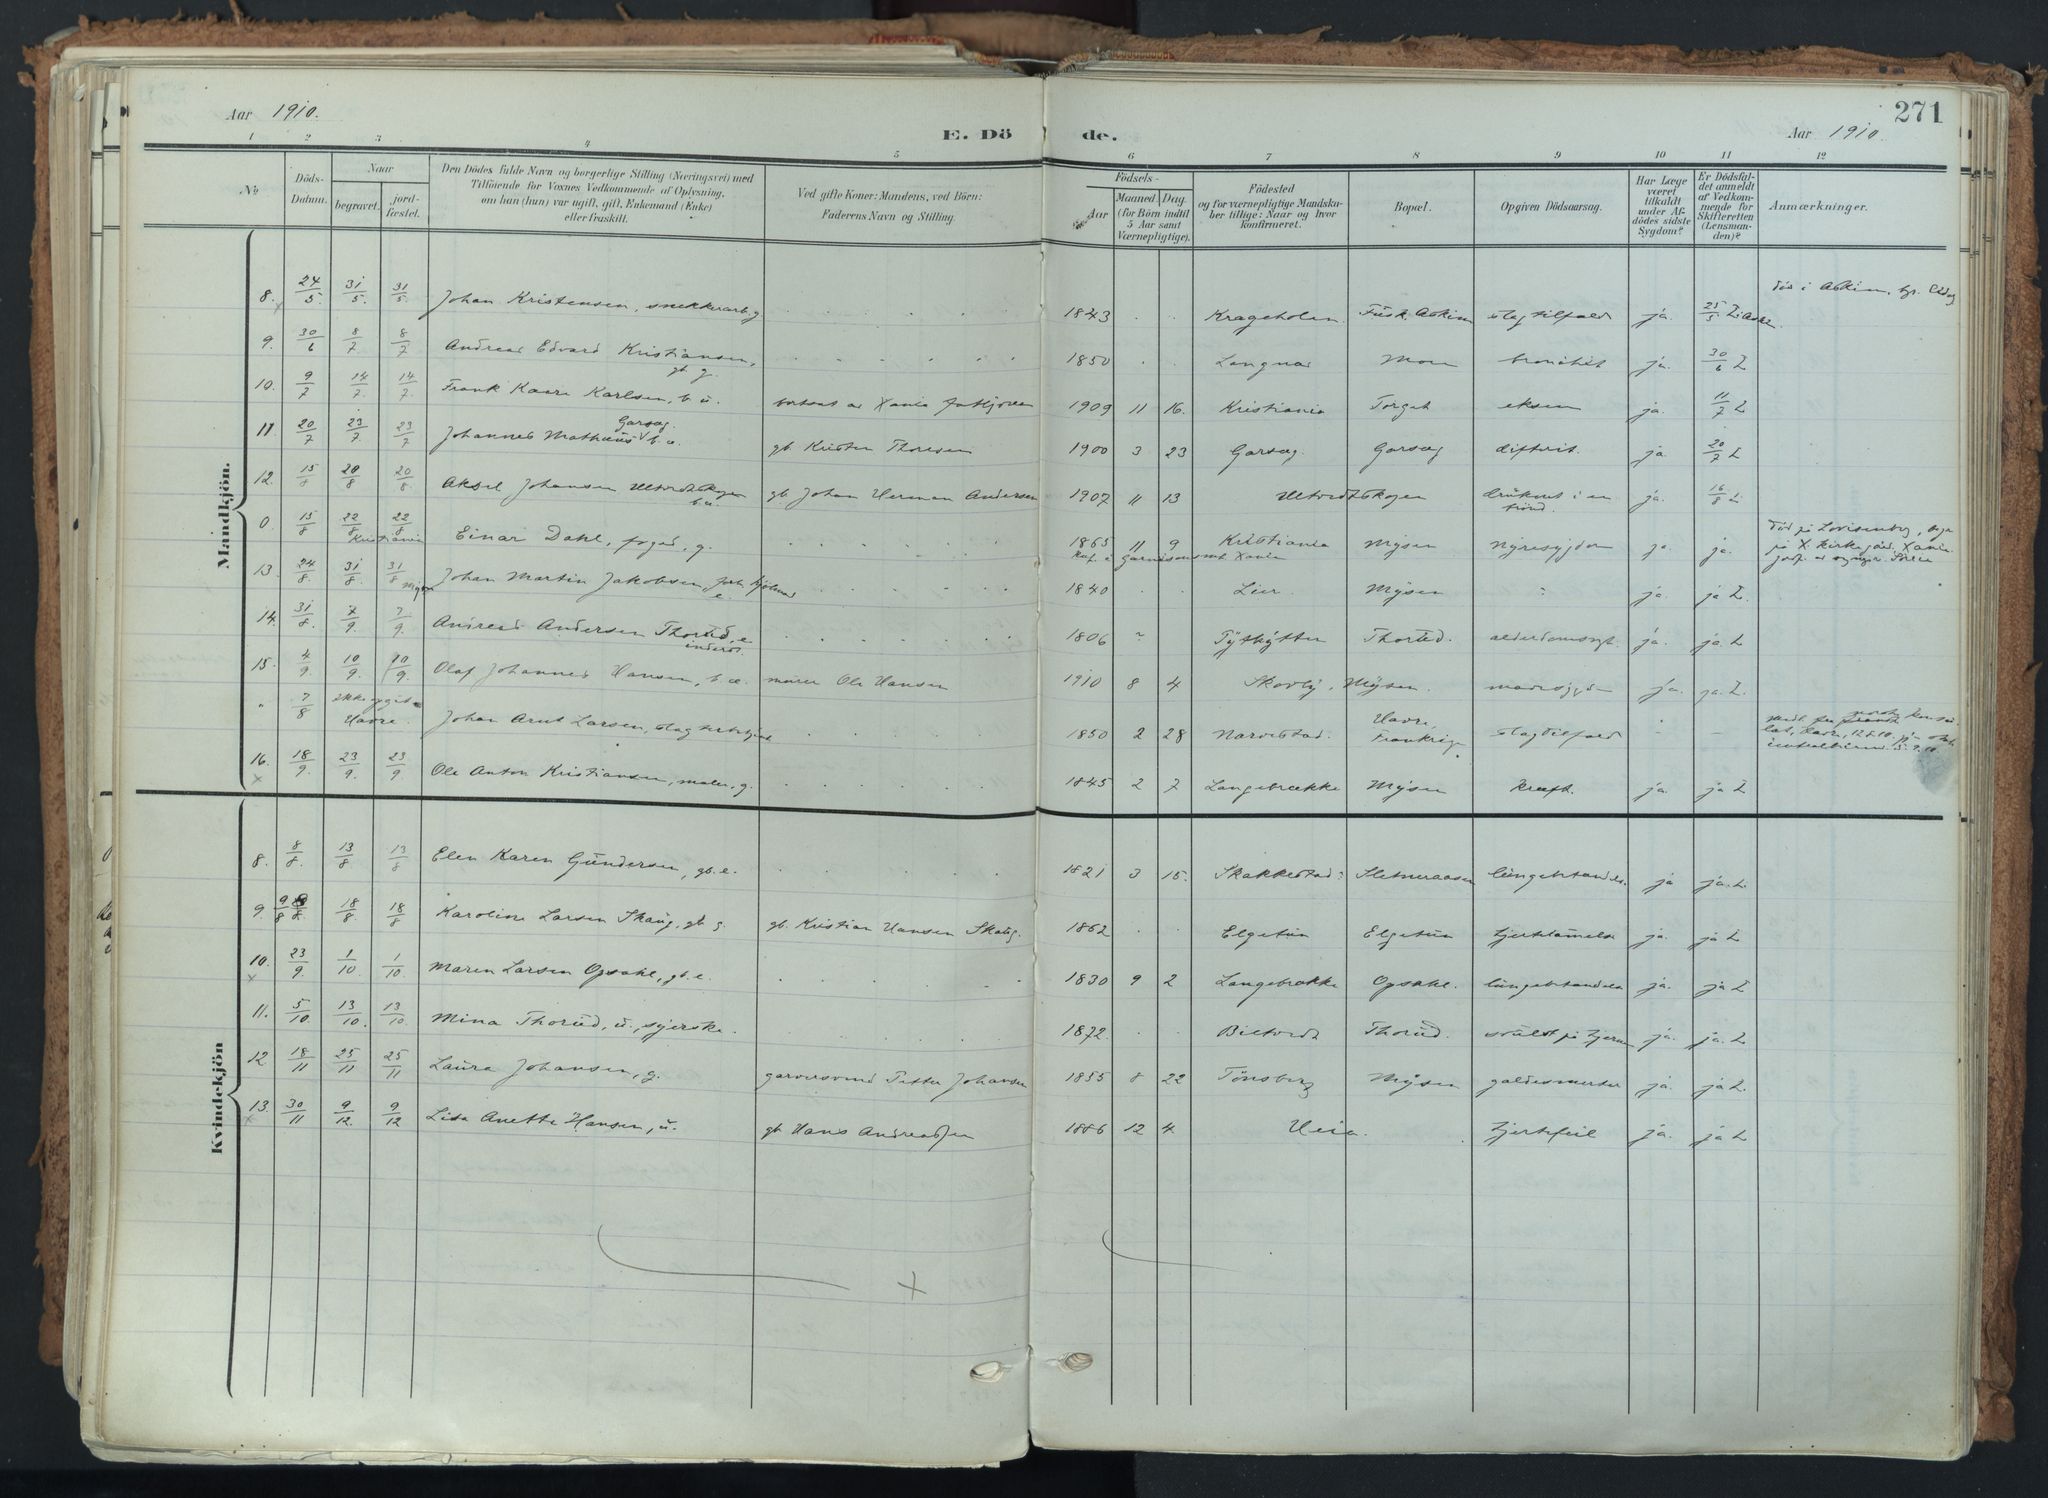 271
Aar 1910.
E. Dö de.
Aar 1910.
1 2 3 4 5 6 7 8 9 10 11 12
No
Döds-Datum.
Naar
begravet.
jord-fæstet.
Den Dödes fulde Navn og borgerlige Stilling (Næringsvei) med
Tilföiende for Voxnes Vedkommende af Oplysning,
om han (hun) var ugift, gift, Enkemand (Enke)
eller fraskilt.
Ved gifte Koner: Mandens, ved Börn:
Faderens Navn og Stilling.
Födsels-
Aar
Maaned. Dag.
(for Börn indtil
5 Aar samt
Værnepligtige).
Födested
og for værnepligtige Mandska-
ber tillige: Naar og hvor
konfirmeret.
Bopæl.
Opgiven Dödsaarsag.
Har Læge
været
tilkaldt
under Af-
dödes sidste
Sygdom?
Er Dödsfal-
det anmeldt
af Vedkom-
mende for
Skifteretten
(Lensman-
den)?
Anmærkninger.
Mandkjön.
8. 24/5. 31/5. 31/5. Johan Kristensen, snekkerarb. g. 1843 Krageholen Askim slagtilfæld ja. 25/5 L. død i Askim,
9. 30/6 8/7 8/7 Andreas Edvard Kristiansen, gb. g. 1850 Langnæs Mon bronchit ja. 30/6 L
10. 9/7 14/7. 14/7. Frank Kaare Karlsen, b. u. bortsat av Xania 1909 11 16. Kristiania Torget eksem ja. 11/7 L
11 20/7 23/7 23/7 Johannes Mathæus Garseg. b. u. gb. Kristen Thoresen 1900 3 23 Garseg. Garseg difterit. ja 20/7 L
12. 15/8 20/8 20/8. Aksel Johansen Ultvedtskogen b. u. gb. Johan Herman Andersen 1907 11 13 Ultvedtskogen druknet i en brønd. ja. 16/8 L.
0. 15/8 22/8 22/8 Kristiania Einar Dahl, foged, g. 1865 11 9 Kristiania Mysen nyresygdom ja ja. død på Lovisenberg,
13. 24/8. 31/8. 31/8 Mysen Johan Martin Jakobsen, e. 1840 Lier Mysen " ja. ja L.
14. 31/8. 7/9. 7/9. Andreas Andersen Thorud, e. inderst. 1806 Thorud. alderdomssvgt. ja. ja L
15. 4/9. 10/9. 10/9. Olaf Johannes Hansen, b. u. murer Ole Hansen 1910 8 4 Skovly, Mysen. ja. ja. L.
" 7/8 Havre. Johan Arnt Larsen, 1850 2 28 Narvestad. Havre, Frankrig. slagtilfæld - -
16. 18/9. 23/9. 23/9. Ole Anton Kristiansen, maler, g. 1845 2 7 Langebrække Mysen kræft. ja. ja L
Kvindekjön
8. 8/8. 13/8 13/8 Elen Karen Gundersen, gb. e. 1821 3 15. Skakkestad Sletneraasen lungebetændels. ja ja. L.
9. 9/8 18/8 18/8 Karoline Larsen Skaug, gb. g. gb. Kristian Hansen Skaug. 1862 Elgetun Elgetun hjertelamelse ja. ja L
10. 23/9 1/10 1/10 Maren Larsen Opsahl, gb. e. 1830 9 2 Langebrække Opsahl. lungebetændels ja. ja L
11. 5/10 13/10. 13/10 Mina Thorud, u., syerske. 1872. Biltvedt Thorud. svulst på hjernen ja. ja. L
12 18/11 25/11 25/11 Laura Johansen, g. garversvend Petter Johansen 1855 8 22 Tönsberg Mysen galdesmerter ja. ja L.
13. 30/11 9/12. 9/12 Lisa Anette Hansen, u. gb Hans Andreassen 1886 12 4 Heia hjertefeil ja. ja L